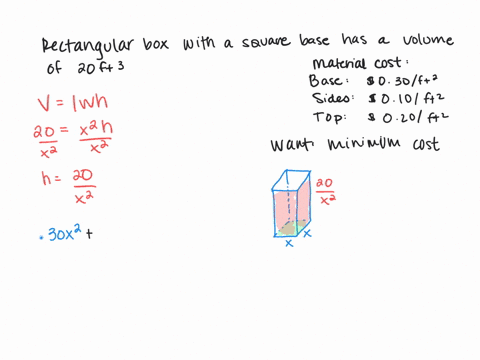 Rectangular box with a square base has a volume
of 20ft^3
Material cost:
Base: $0.30/ft^2
Sides: $0.10/ft^2
Top: $0.20/ft^2
Want minimum cost
V = lwh
20/x^2 = x^2h/x^2
h = 20/x^2
.30x^2 +
20/x^2
x
x